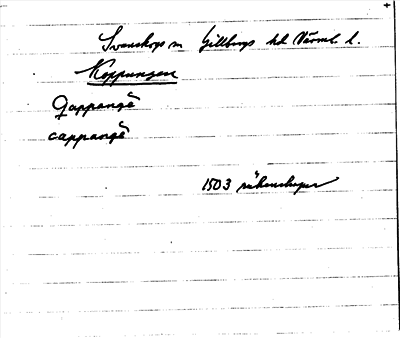 Svanskogs sn Gillbergs hd Värml. l.
Koppungen
Qappangē
cappangē
1503 räkenskaper